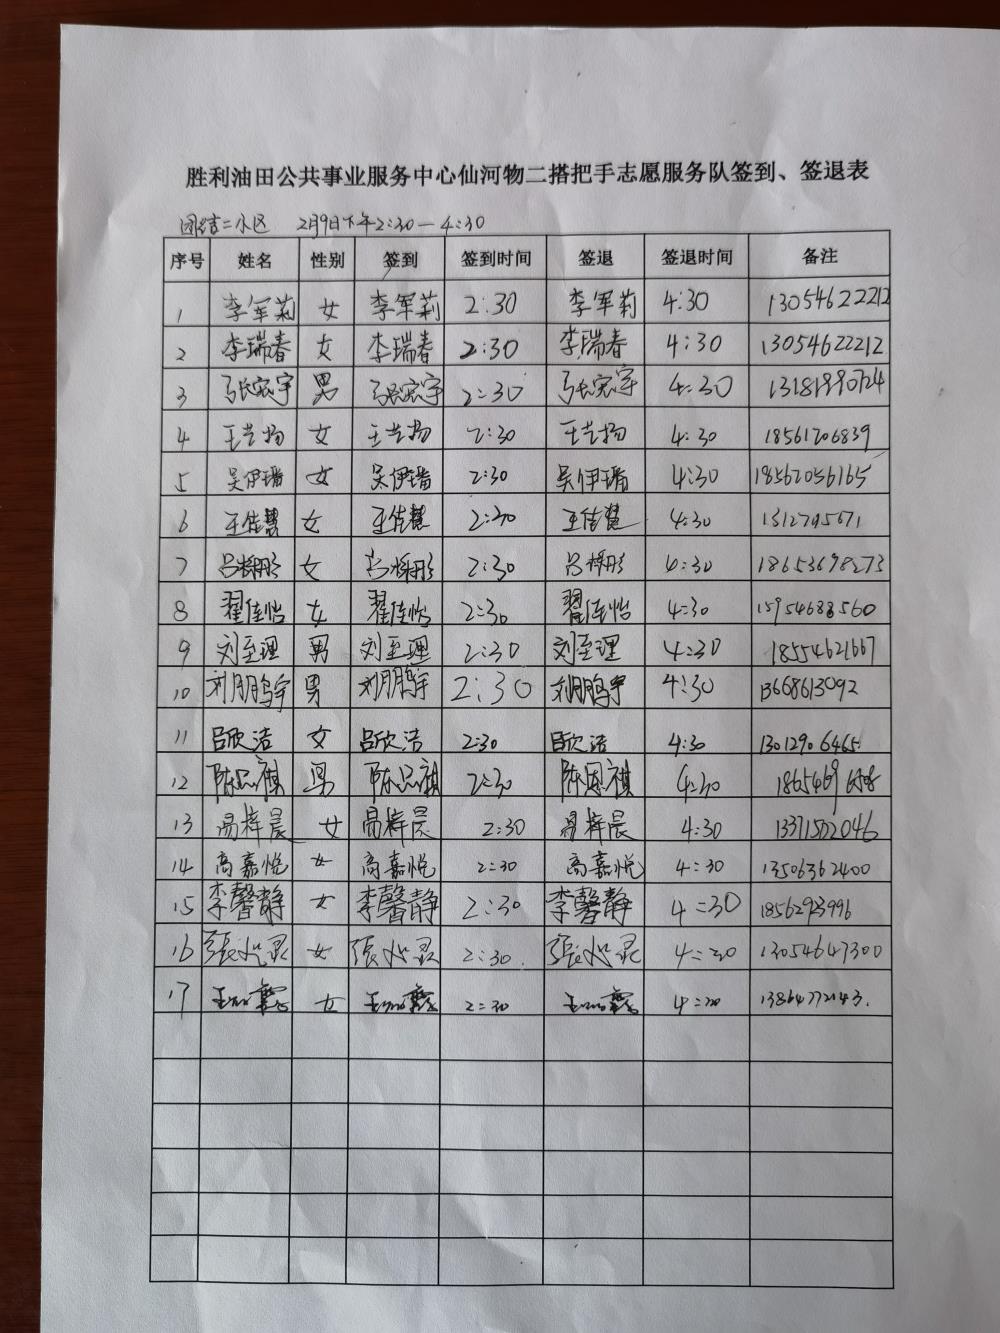 胜利油田公共事业服务中心仙河物二搭把手志愿服务队签到、签退表
团结二小区 2月9日下午2:30—4:30
序号 姓名 性别 签到 签到时间 签退 签退时间 备注
1 李军莉 女 李军莉 2:30 李军莉 4:30 13054622212
2 李瑞春 女 李瑞春 2:30 李瑞春 4:30 13054622212
3 张宸宇 男 张宸宇 2:30 张宸宇 4:30 13181990724
4 王艺扬 女 王艺扬 2:30 王艺扬 4:30 18561206839
5 吴伊璠 女 吴伊璠 2:30 吴伊璠 4:30 18562056165
6 王佳慧 女 王佳慧 2:30 王佳慧 4:30 1312795671
7 女 2:30 4:30 18653698273
8 翟佳怡 女 翟佳怡 2:30 翟佳怡 4:30 15954688560
9 刘至理 男 刘至理 2:30 刘至理 4:30 18554621667
10 刘鹏宇 男 刘鹏宇 2:30 刘鹏宇 4:30 13668613092
11 吕欣洁 女 吕欣洁 2:30 吕欣洁 4:30 13012906465
12 陈思祺 男 陈思祺 2:30 陈恩祺 4:30 1865469
13 梓晨 女 梓晨 2:30 梓晨 4:30 13371502046
14 高嘉悦 女 高嘉悦 2:30 高嘉悦 4:30 13506362400
15 李馨静 女 李馨静 2:30 李馨静 4:30 18562923996
16 女 2:30. 4:30 13054647300
17 女 2:30 4:30 13864772143.